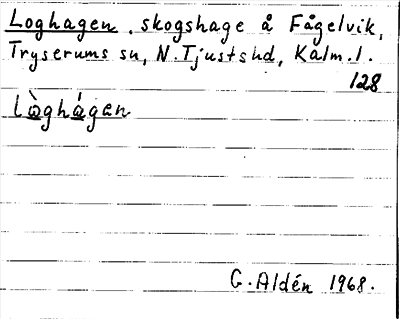 Loghagen, skogshage å Fågelvik,
Tryserums sn, N. Tjusts hd, Kalm. l.
128
lòghágen
G. Aldén 1968.